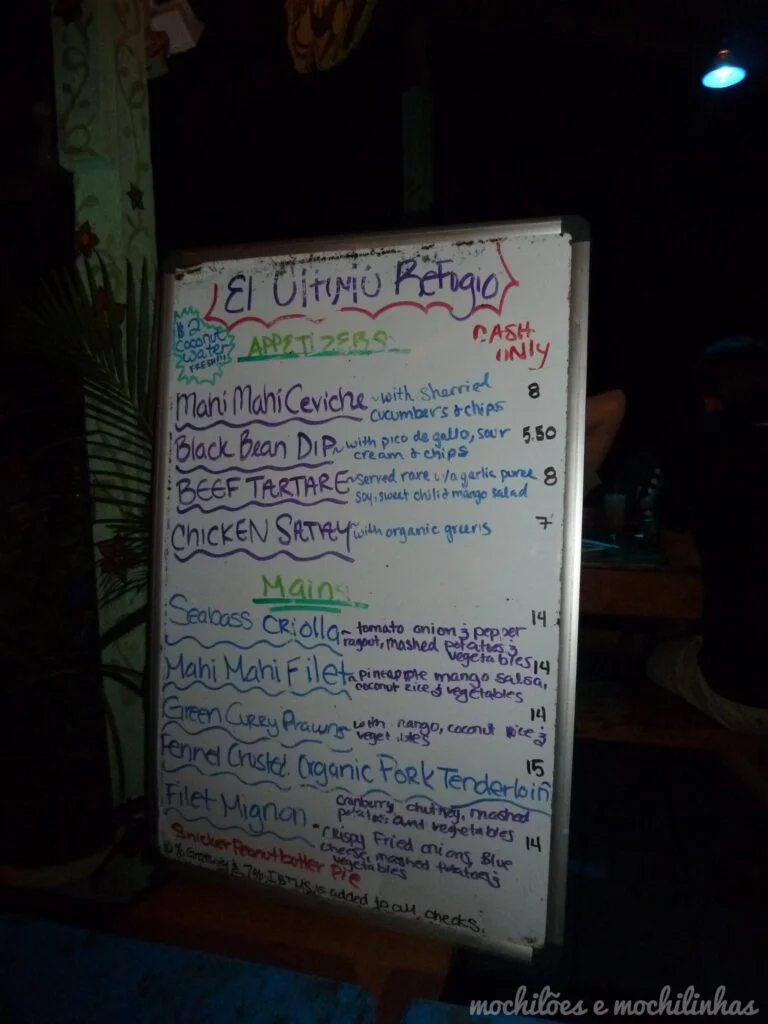 El Ultimo Refugio
$2 coconut water FRESH!!!
APPETIZERS
CASH ONLY
Mahi Mahi Ceviche ~ with sherried 8
cucumbers & chips
Black Bean Dip ~ with pico de gallo, sour 5.50
cream & chips
BEEF TARTARE ~ served rare w/a garlic puree 8
soy, sweet chili & mango salad
CHICKEN SATAY ~ with organic greens 7
Mains
Seabass Criolla ~ tomato onion & pepper 14
ragout, mashed potatoes &
vegetables
Mahi Mahi Filet ~ pineapple mango salsa, 14
coconut rice & vegetables
Green Curry Prawns ~ with mango, coconut rice & 14
vegetables
Fennel Crusted Organic Pork Tenderloin 15
cranberry chutney, mashed
potatoes and vegetables
Filet Mignon ~ crispy fried onions, blue 14
cheese, mashed potatoes &
vegetables
Snicker Peanutbutter Pie
10% & 7% I.T.B.M.S is added to all checks.
mochilões e mochilinhas